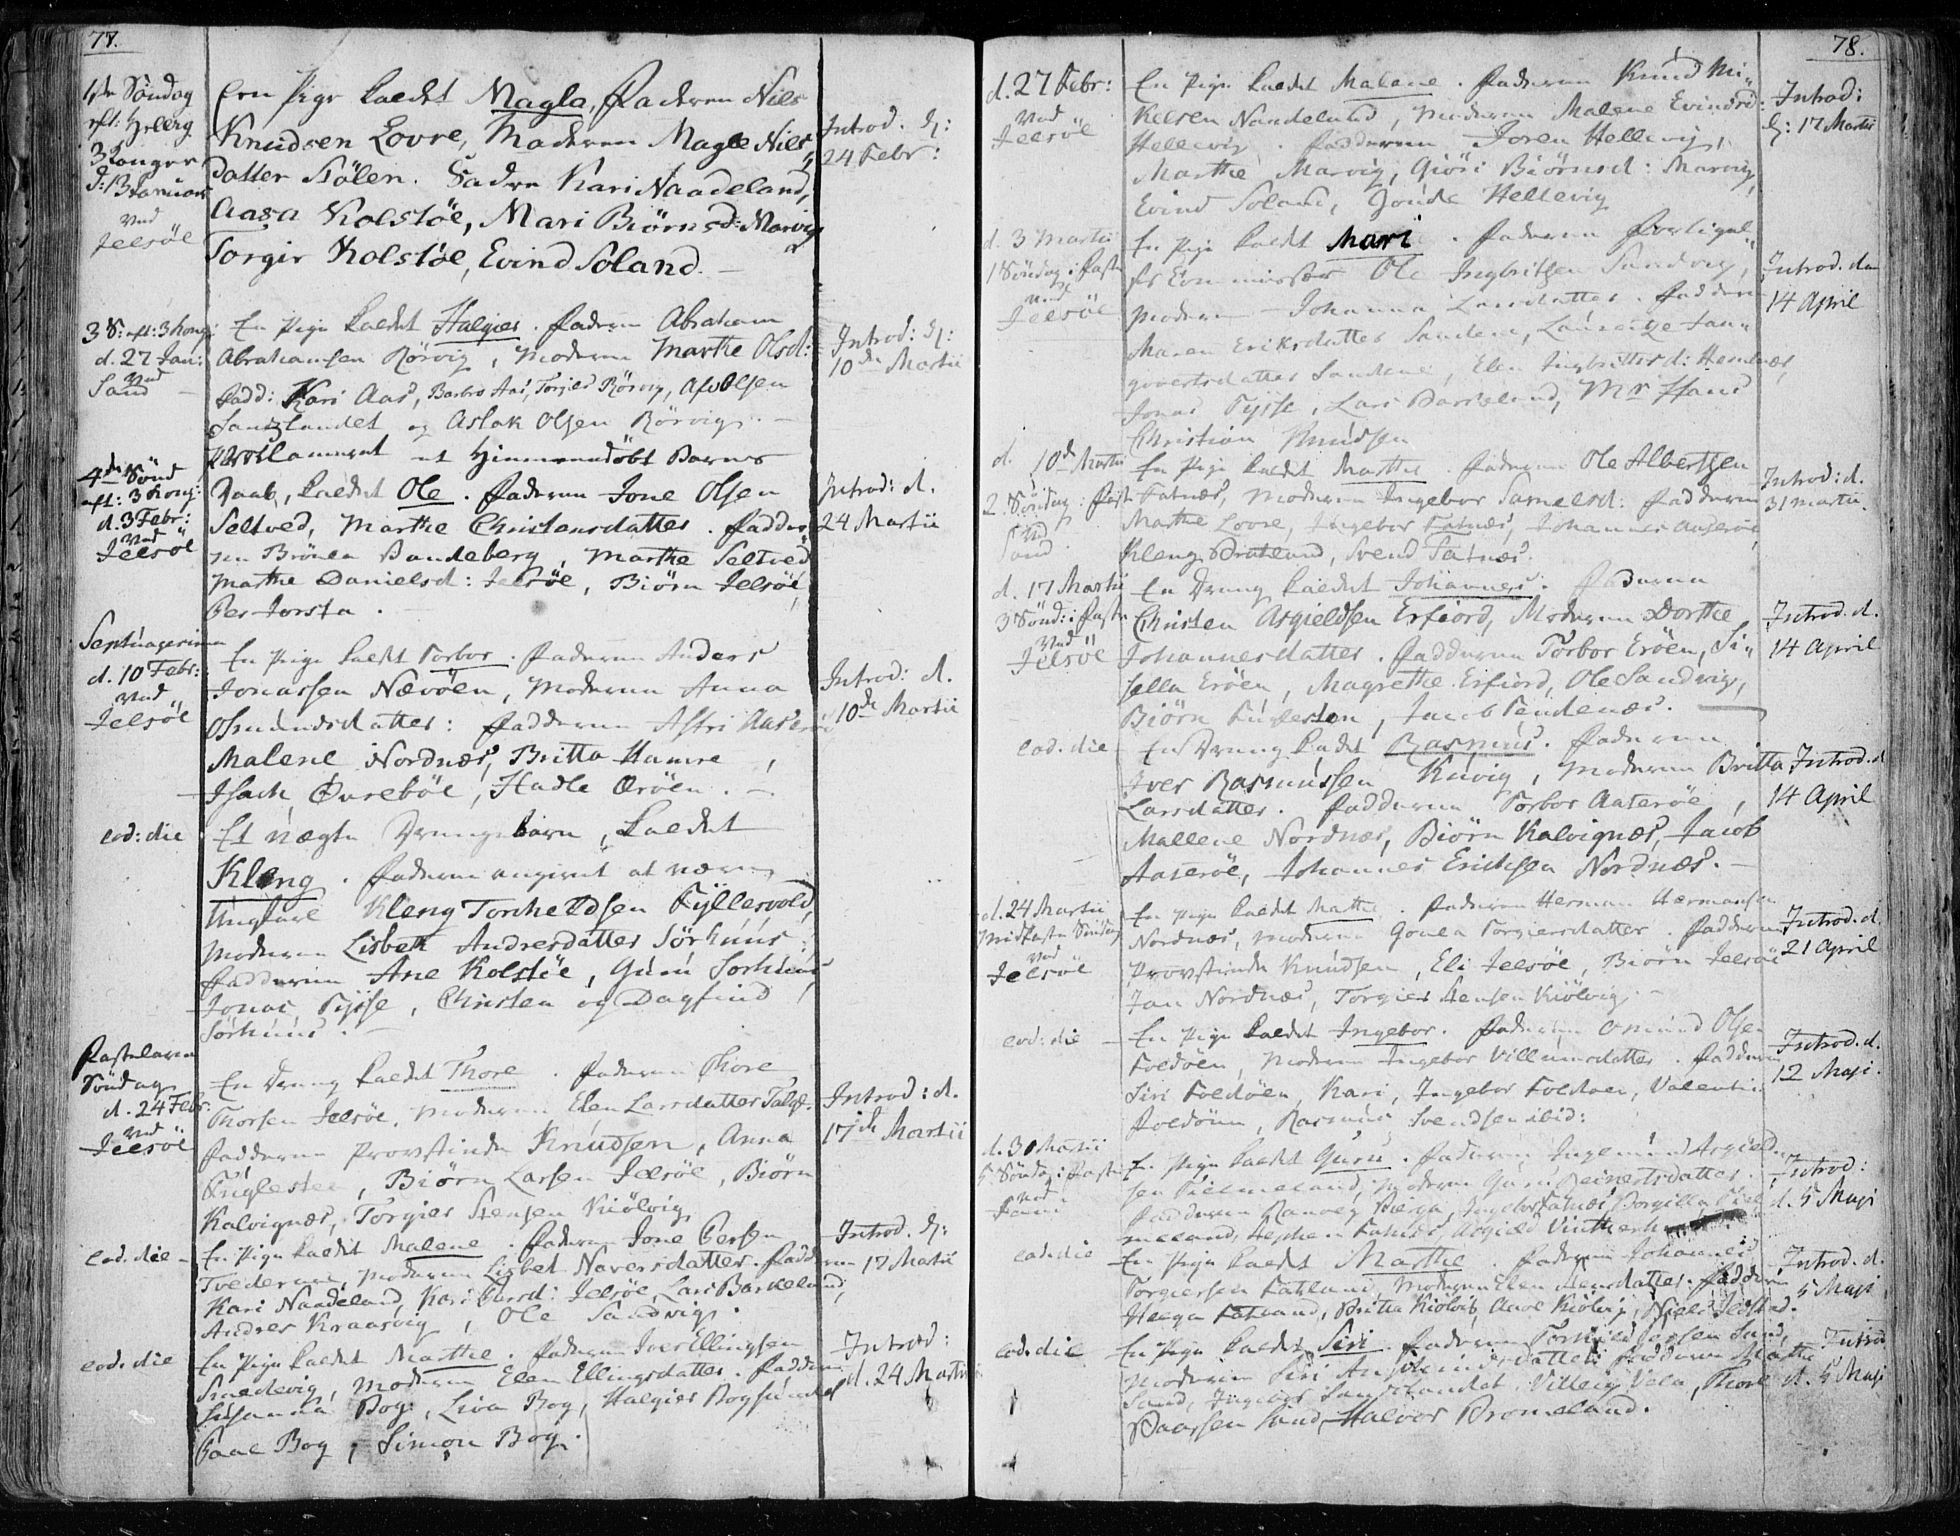 77.
1ste Söndag
eft: Hellig
3 Konger
d: 13 Januar
ved
Jelsöe
Een Pige kaldet Magla, Faderen Nils
Knudsen Lovre, Moderen Magle Nils
datter Stölen. Fadre Kari Naadeland,
Aasa Kolstöe, Mari Biörnsd: Marvig
Torgir Kolstöe, Evind Soland.
Introd. d:
24 Febr:
3 S: eft: 3 Kong:
d. 27 Jan:
ved
Sand
En Pige kaldet Halgier. Faderen Abraham
Abrahamsen Rörvig, Moderen Marthe Olsd:
Fadd: Kari Aas, Barbro Aas, Torgier Rörvig, Olsen
Sandslandet og Aslak Olsen Rörvig.
Introd: d:
10de Martii
4de Sönd
eft: 3 Kong:
d. 3 Febr:
ved
Jelsöe
Proclameret et Hjemmedöbt Barns
Daab, kaldet Ole. Faderen Jone Olsen
Seltved, Marthe Christensdatter. Fadder
ne Brönla Bandeberg, Marthe Seltved
Marthe Danielsd: Jelsöe, Biörn Jelsöe,
Per Jorsta.
Introd: d.
24 Martii
Septuagesima
d. 10 Febr:
ved
Jelsöe
En Pige kaldet Torbor. Faderen Anders
Jonassen Nævöen, Moderen Anna
Osmundsdatter: Fadderne Astri Aaseröe
Malene Nordnæs, Britta Hamre,
Isach Övreböe, Hadle Eröen.
Introd: d.
10de Martii
eod: die
Et uægte Drengebarn, kaldet
Kleng. Faderen angivet at være
Ungkarl Kleng Torkelldsen Fyllesvold,
Moderen Lisbeth Andresdatter Sörhuus:
Fadderne Ane Kolstöe, Guru Sörhuus
Jonas Tysse, Christen og Dagfind
Sörhuus.
Fastelavns
Söndag
d. 24 Febr.
ved
Jelsöe
En Dreng kaldet Thore. Faderen Thore
Thorsen Jelsöe, Moderen Elen Larsdatter
Fadderne Provstinde Knudsen, Anna
Fuglesteen, Biörn Larsen Jelsöe, Biörn
Kalvignæs, Torgier Stensen Kiölvig
Introd: d.
17de Martii
eod. die
En Pige kaldet Malene. Faderen Jone Persen
Tvederne, Moderen Lisbet Naversdatter. Fadderne
Kari Naadeland, Kari Larsd: Jelsöe, Lars Barkeland,
Andres Kraasvig, Ole Sandvig.
Introd. d:
17 Martii
eod. die
En Pige kaldet Marthe. Faderen Iver Ellingsen
Snaldevig, Moderen Elen Ellingsdatter. Fadderne
Susanna Bog, Liva Bog, Halgier Bogsundet
Paal Bog, Simon Bog.
Introd:
d. 24 Martii
78.
d. 27 Febr:
ved
Jelsöe
En Pige kaldet Malene. Faderen Knud Mi-
kelsen Nandelund, Moderen Malene Evindsd:
Hellevig. Fadderne Joren Hellevig,
Marthe Marvig, Giöri Biörnsd: Marvig
Evind Soland, Gonde Hellevig
Introd:
d: 17 Martii
d. 3 Martii
1 Söndag i Faste
ved
Jelsöe
En Pige kaldet Mari. Faderen Forligel-
ses Commissær Ole Ingbritsen Sandvig,
Moderen Johanna Larsdatter. Fadderne
Maren Eriksdatter Sandene, Lauritze Jan-
govertsdatter Sandene, Elen Ingbrittsd: Hennes,
Jonas Tysse, Lars Barkeland, Mr Hans
Christian Knudsen
Introd. den
14 April
d. 10de Martii
2. Söndag i Faste
ved
Sand.
En Pige kaldet Marthe. Faderen Ole Albertsen
Fatnæs, Moderen Ingebor Samelsd: Fadderne
Marthe Lovre, Ingebor Fatnæs, Johannes Aaseröe,
Kleng Bratland, Svend Fatnæs.
Introd: d.
31 Martii.
d. 17 Martii
3 Sönd: i Faste
ved
Jelsöe
En Dreng kaldet Johannes. Faderen
Christen Asgieldsen Erfiord, Moderen Dorthe
Johannesdatter. Fadderne Torbor Eröen, Si-
sella Eröen, Magrethe Erfiord, Ole Sandvig,
Biörn Fuglesten, Jacob Tendenæs.
Introd. d.
14 April
eod. die
En Dreng kaldet Rasmus. Faderen
Iver Rasmussen Kuvig, Moderen Britta
Larsdatter. Fadderne Torbor Aaseröe,
Mallene Nordnæs, Biörn Kalvignæs, Jacob
Aaseröe, Johannes Erichsen Nordnæs.
Introd. d.
14 April
d. 24 Martii
Midfaste Söndag
ved
Jelsöe
En Pige kaldet Marthe. Faderen Herman Hermansen
Nordnæs, Moderen Gonla Torgiersdatter. Fadderne
Provstinde Knudsen, Eli Jelsöe, Biörn Jelsöe
Jan Nordnæs, Torgier Stensen Kiölvig.
Introd. d.
21 April
eod: die
En Pige kaldet Ingebor. Faderen Osmund Olsen
Foldöen, Moderen Ingebor Villumsdatter. Fadderne
Siri Foldöen, Kari, Ingebor Foldöen, Valentin
Foldöen, Rasmus Svendsen ibid:
Introd. d.
12 Maji.
d. 30 Martii
5 Söndag i Faste
ved
Sand
En Pige kaldet Guru. Faderen Ingemund Asgield-
sen Tielmeland, Moderen Guru Reinertsdatter.
Fadderne Ranveg Berga, Ingebor Fatnæs, Borgilla Tiel-
meland, Stephen Fatnæs, Asgield Vinterhuus
Introd:
d. 5 Maji
eod. die
En Pige kaldet Marthe. Faderen Johannes
Torgiersen Fatland, Moderen Elen Hansdatter. Fadderne
Helga Fatland, Britta Kiölvig, Aase Kiölvig, Niels Jelstad.
Introd. d.
5 Maji
eod. die
En Pige kaldet Siri. Faderen Torkild Sand,
Moderen Siri datter. Fadderne Marthe
Sand, Ingebor Sandslandet, Villeig Vela, Thore
Baarsen Sand, Halvor Bromeland.
Introd
d. 5 Maji